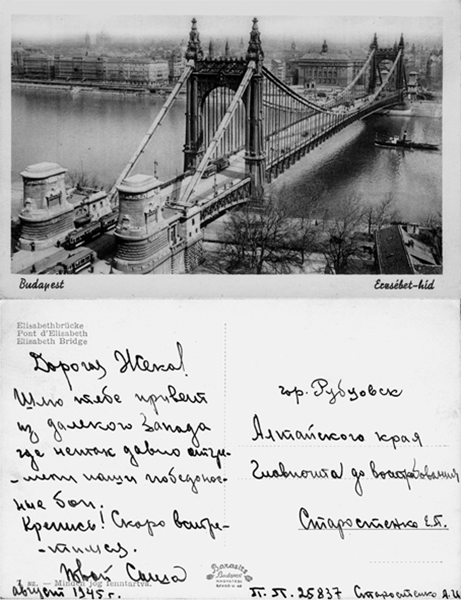 Budapest
Erzsébet-híd
Elisabethbrücke
Pont d'Elisabeth
Elisabeth Bridge
Дорогая Жека!
Шлю тебе привет
из далекого Запада
где не так давно отгре-
-мели наши победонос-
ные бои.
Крепись! Скоро встре-
-тимся.
Твой Саша
sz. — Minden jog fenntartva.
август 1945 г.
гор. Рубцовск
Алтайского края
Главпочта до востребования
Старостенко Е.П.
Barasits
Budapest
П. П. 25837 Старостенко А.И